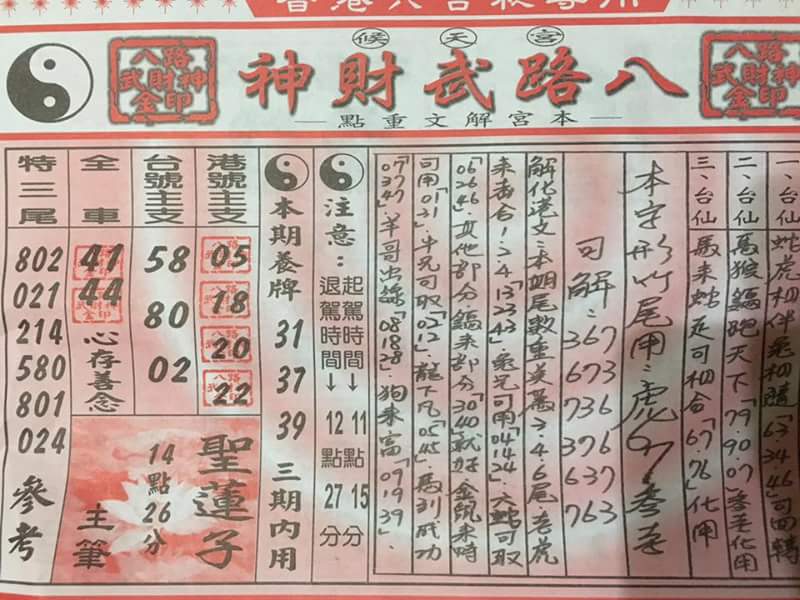 候天宮
神財武路八
點重文解宮本
八路武財神金印
八路武財神金印
一、台仙 蛇虎相伴兔相隨「63.34.46」可回轉
二、台仙 馬猴鑼跑天下「79.90.07」參考化用
三、台仙 馬來蛇足可相合「67.76」化用
本字形竹尾用：虎67參考
可解：367
673
736
376
637
763
解化港文：本期尾數重美為3.4.6尾老虎
來去合！3.4.13.23.43」兔兄可用「04.14.24」大蛇可取
「06.26.46」其他部分鑼來部分「30.40」就好金鼠來時
可用「01.31」牛兄可取「02.12」龍下凡「05.45」馬到成功
「07.37.47」羊哥出線「08.18.28」狗來富「09.19.39」
注意：
起駕時間→11點15分
退駕時間→12點27分
本期養牌 31 37 39 三期內用
港號主支
05
18
20
22
台號主支
58
80
02
全車
41
44
心存善念
特三尾
802
021
214
580
801
024
參考
聖蓮子
14點26分
主筆